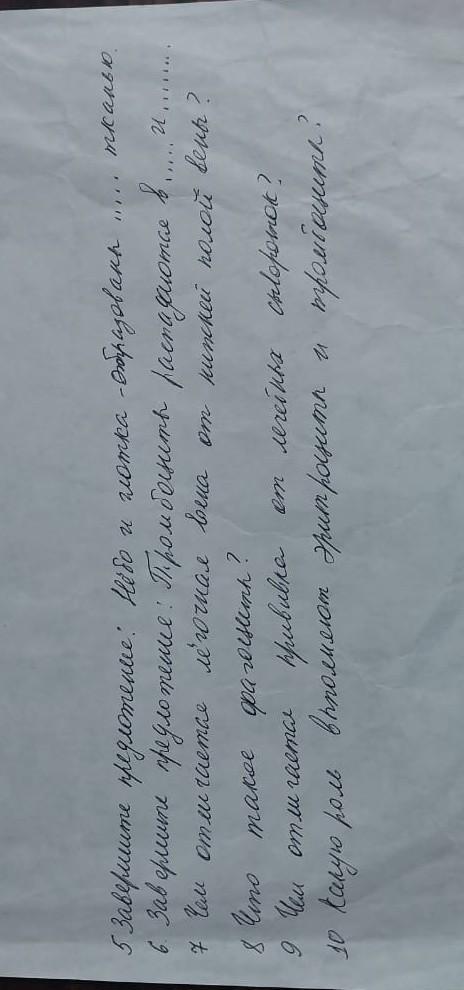 5 Завершите предложение: Нёбо и глотка - образованы ..... тканью.
6. Завершите предложение: Тромбоциты распадаются в ..... и ........
7 Чем отличается лёгочная вена от нижней полой вены?
8 Что такое фагоциты?
9 Чем отличается прививка от лечебных сывороток?
10 Какую роль выполняют эритроциты и тромбоциты?